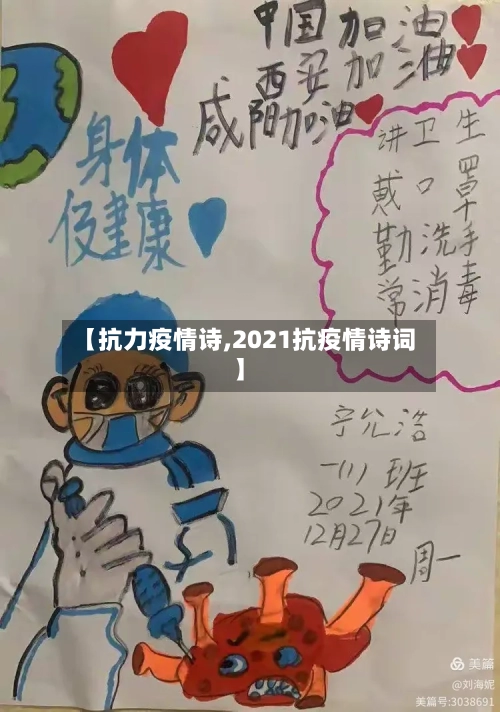 中国加油
西安加油
咸阳加油
身体
健康
讲卫生
戴口罩
勤洗手
常消毒
【抗力疫情诗,2021抗疫情诗词
】
宁允浩
一(1)班
2021年
12月27日
周一
美篇
@刘海妮
美篇号:3038691